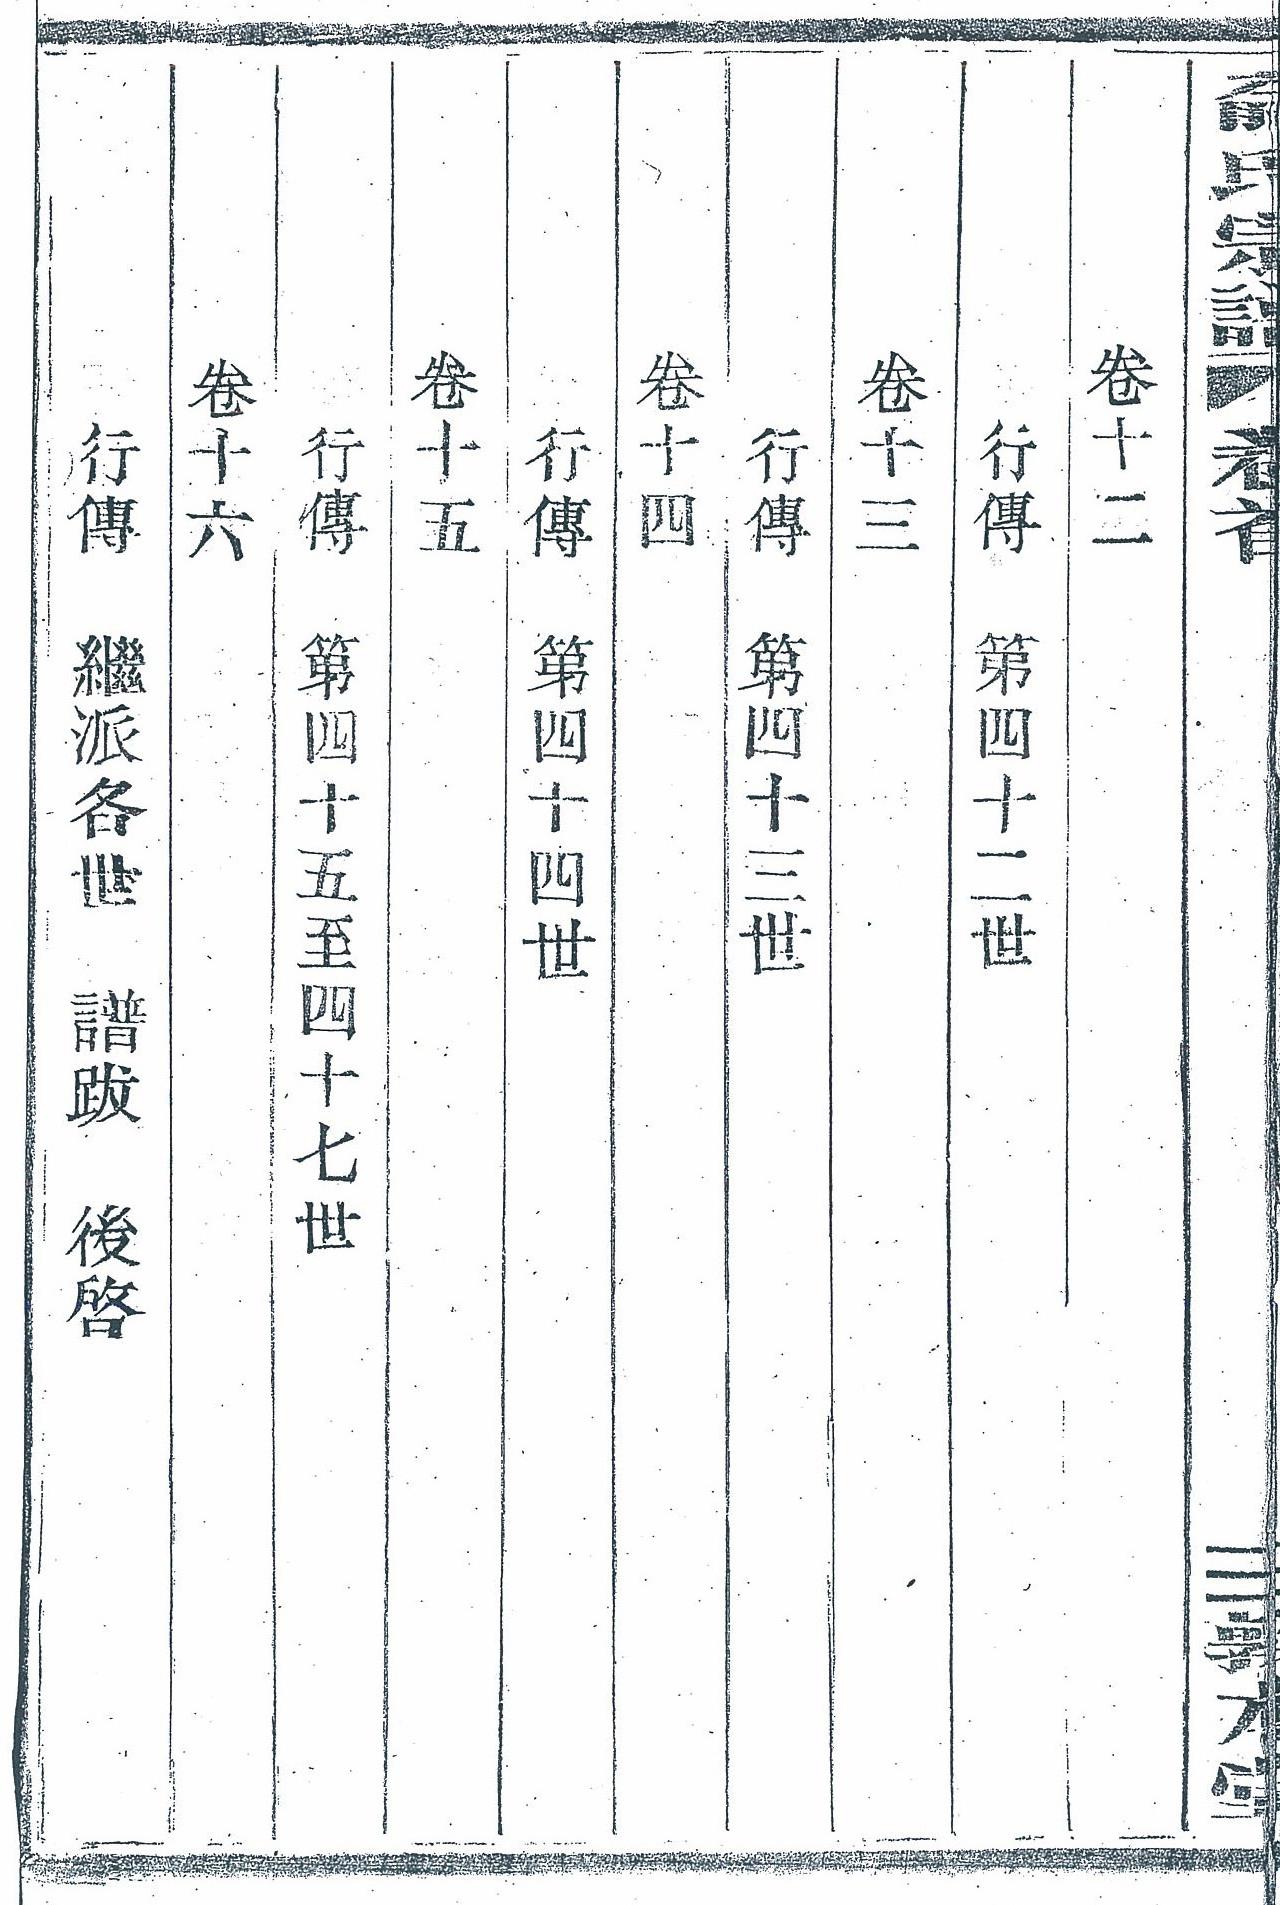 氏宗譜
卷首
三
卷十二
行傳 第四十二世
卷十三
行傳 第四十三世
卷十四
行傳 第四十四世
卷十五
行傳 第四十五至四十七世
卷十六
行傳 繼派各世 譜跋 後啓